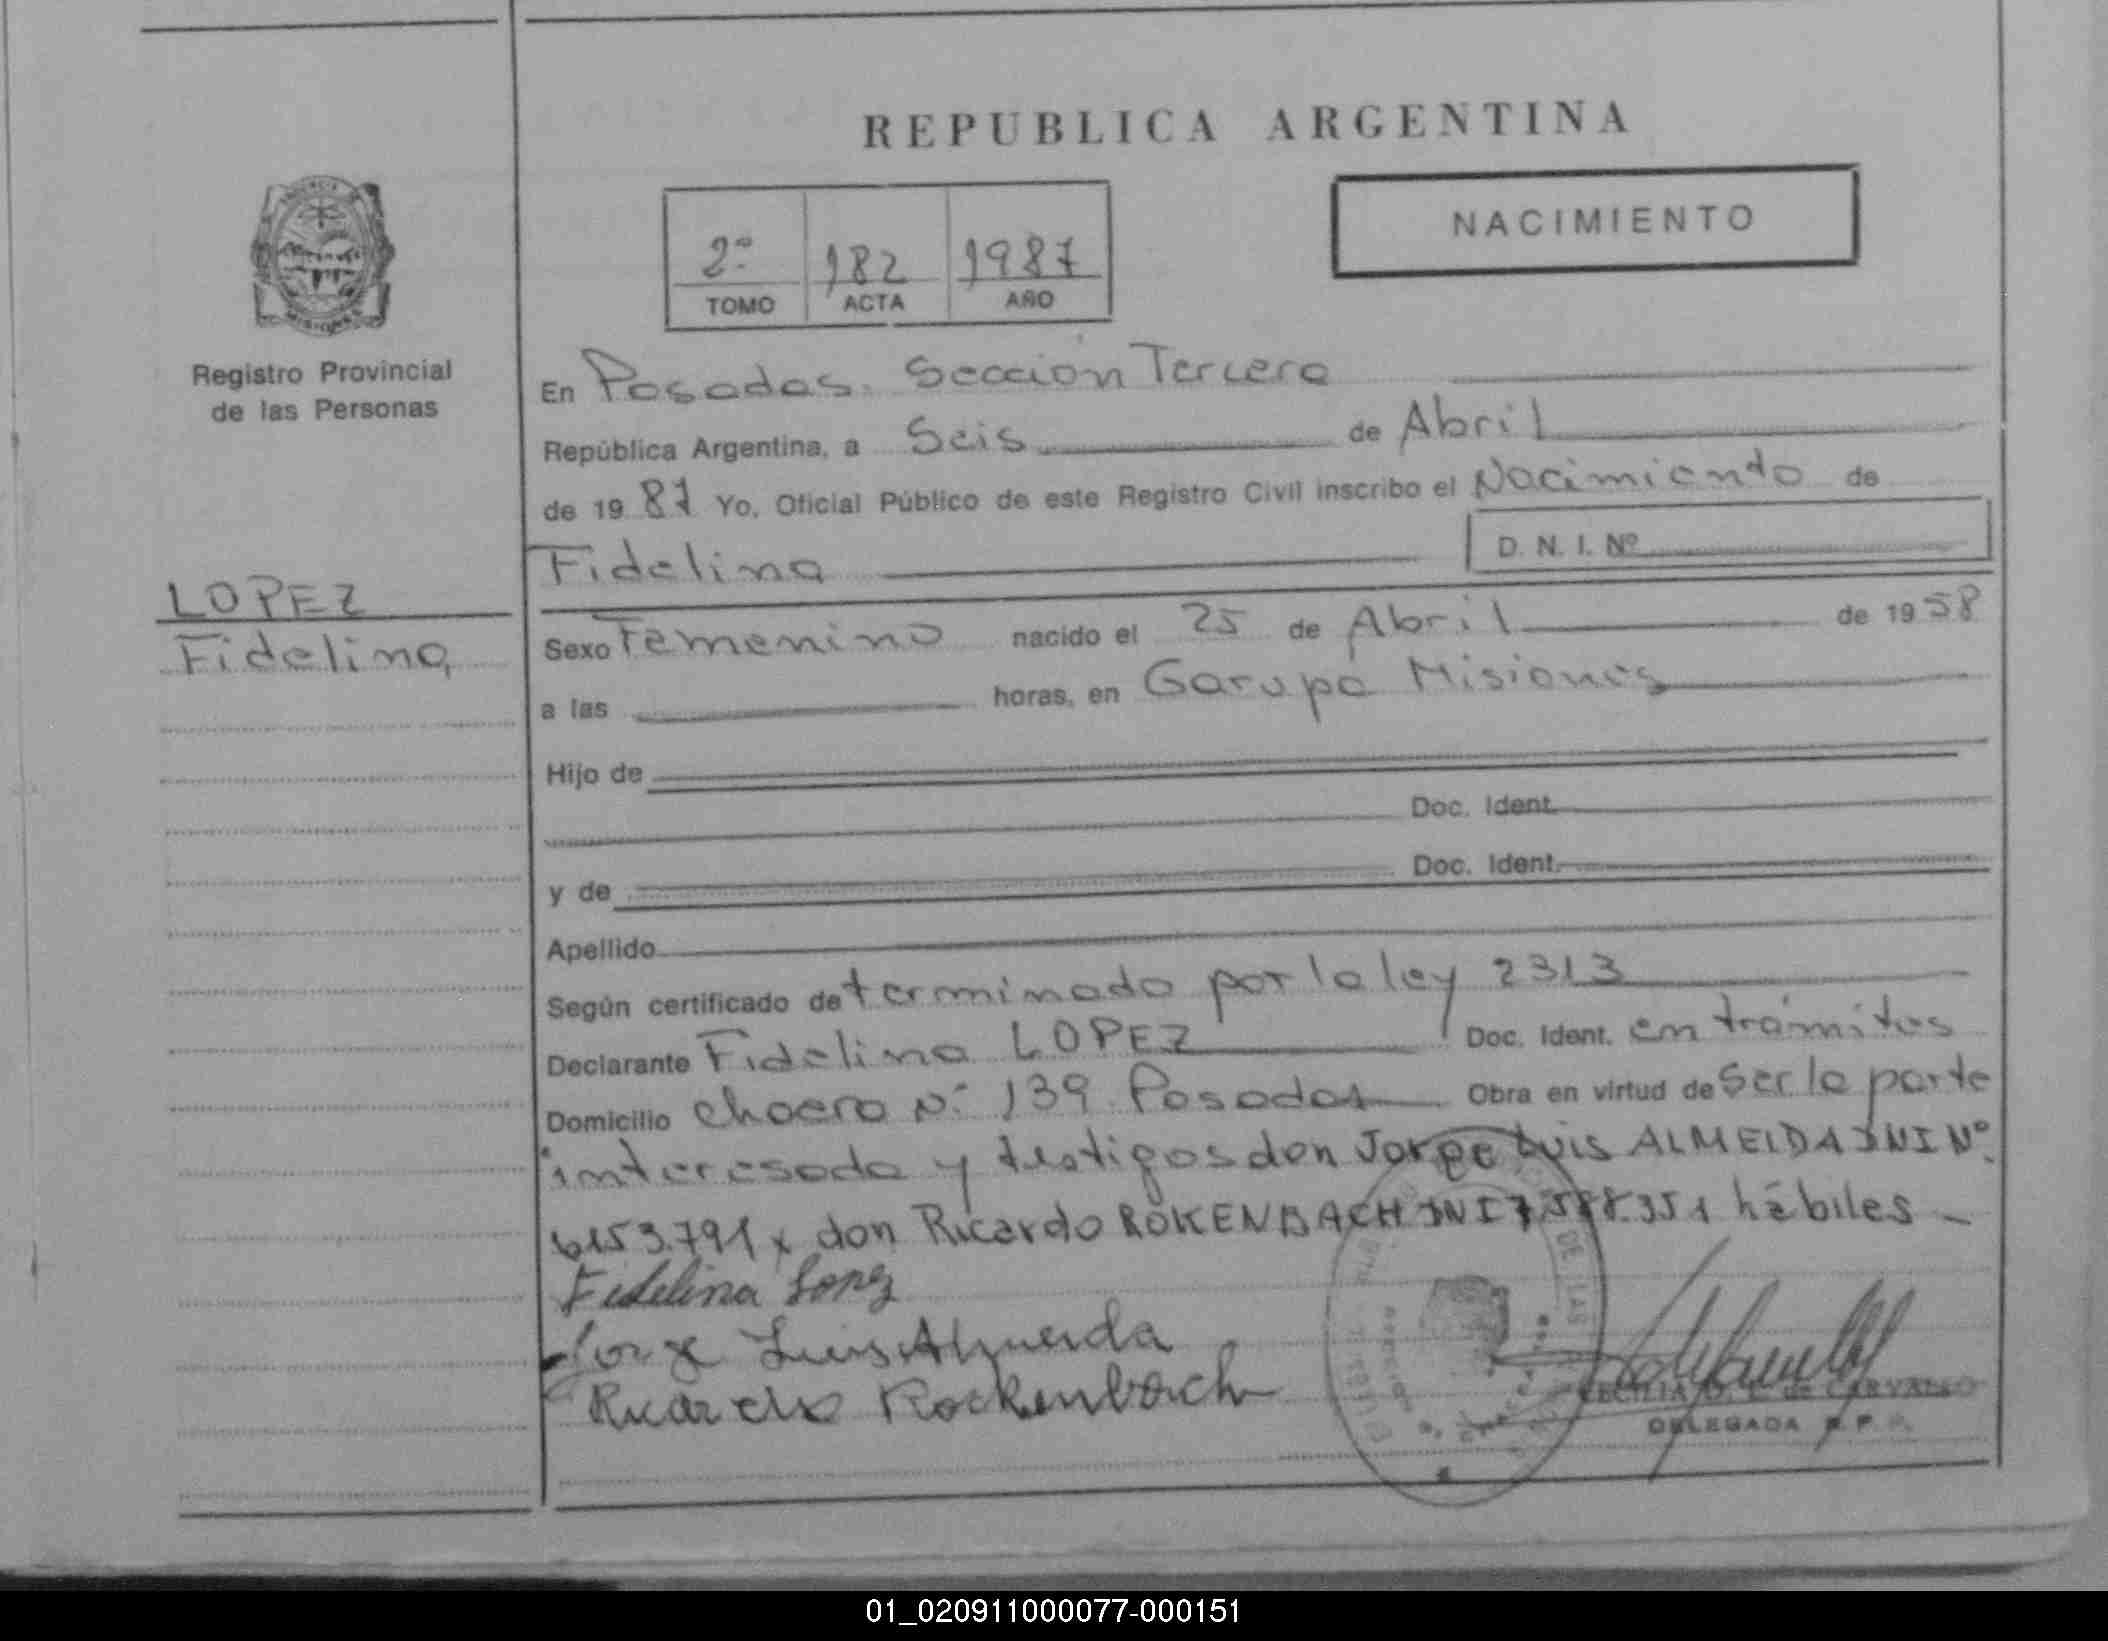 REPUBLICA ARGENTINA
NACIMIENTO
2º 182 1987
TOMO ACTA AÑO
Registro Provincial
de las Personas
LOPEZ
Fidelina
En Posadas. Sección Tercera
República Argentina, a Seis de Abril
de 1987 Yo, Oficial Público de este Registro Civil inscribo el Nacimiento de
Fidelina D. N. I. Nº
Sexo Femenino nacido el 25 de Abril de 1958
a las horas, en Garupá Misiones
Hijo de
Doc. Ident.
y de Doc. Ident.
Apellido
Según certificado determinado por la ley 2313
Declarante Fidelina LOPEZ Doc. Ident. en trámites
Domicilio Nº 139 Posadas Obra en virtud de ser la parte
interesada y testigos don Jorge Luis ALMEIDA DNI Nº
6153.791 y don Ricardo ROKENBACH DNI 7.588.351 hábiles
Fidelina Lopez
Jorge Luis Almeida
Ricardo Rockenbach
DE LAS
CECILIA de CARVALHO
DELEGADA R. P. P.
01_020911000077-000151